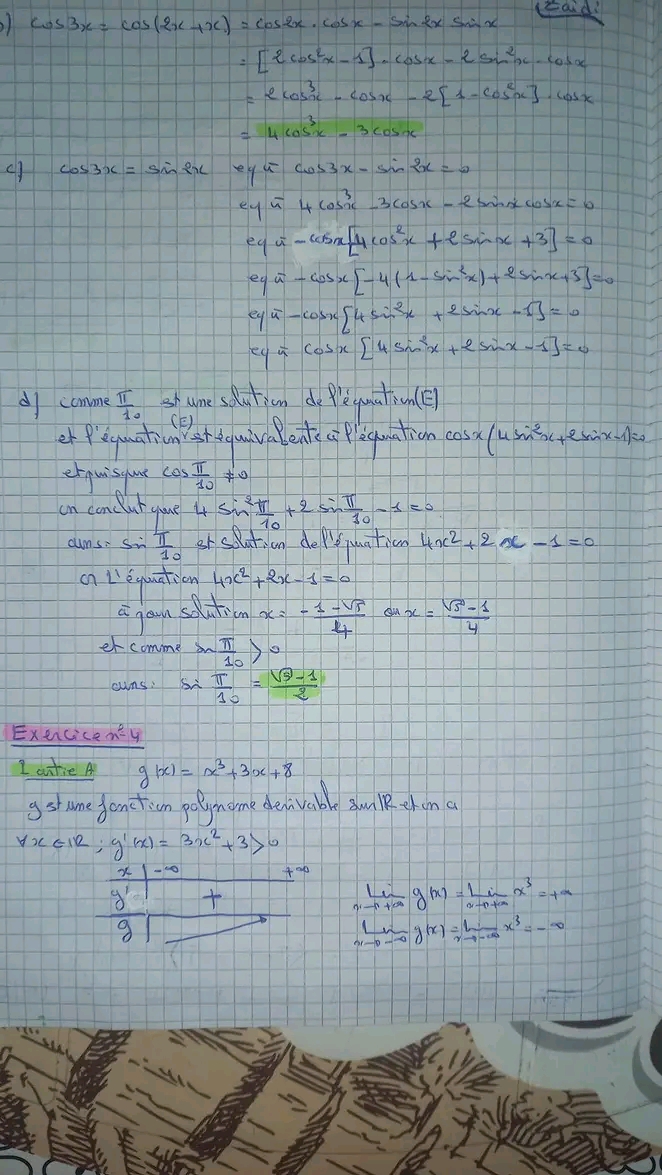 Zaidi
b) cos3x = cos(2x+x) = cos2x . cosx - sin2x sinx
= [2cos²x - 1] . cosx - 2sin²x . cosx
= 2cos³x - cosx - 2[1-cos²x] . cosx
= 4cos³x - 3cosx
c) cos3x = sin2x eq à cos3x - sin2x = 0
eq à 4cos³x - 3cosx - 2sinx cosx = 0
eq à -cosx[4cos²x + 2sinx + 3] = 0
eq à -cosx[-4(1-sin²x) + 2sinx+3] = 0
eq à -cosx[4sin²x + 2sinx - 1] = 0
eq à cosx [4sin²x + 2sinx - 1] = 0
d) comme π/10 est une solution de l'équation (E)
et l'équation (E) est équivalente à l'équation cosx(4sin²x+2sinx-1)=0
et puisque cos π/10 ≠ 0
on conclut que 4 sin² π/10 + 2 sin π/10 - 1 = 0
ainsi sin π/10 est solution de l'équation 4x² + 2x - 1 = 0
or l'équation 4x² + 2x - 1 = 0
à pour solution x = (-1-√5)/4 ou x = (√5-1)/4
et comme sin π/10 > 0
ainsi sin π/10 = (√5-1)/2
Exercice n°4
Partie A g(x) = x³+3x+8
g est une fonction polynome derivable sur IR et on a
∀x∈IR ; g'(x) = 3x²+3 > 0
x -∞ +∞
g' +
g
Lim x→+∞ g(x) = Lim x→+∞ x³ = +∞
Lim x→-∞ g(x) = Lim x→-∞ x³ = -∞